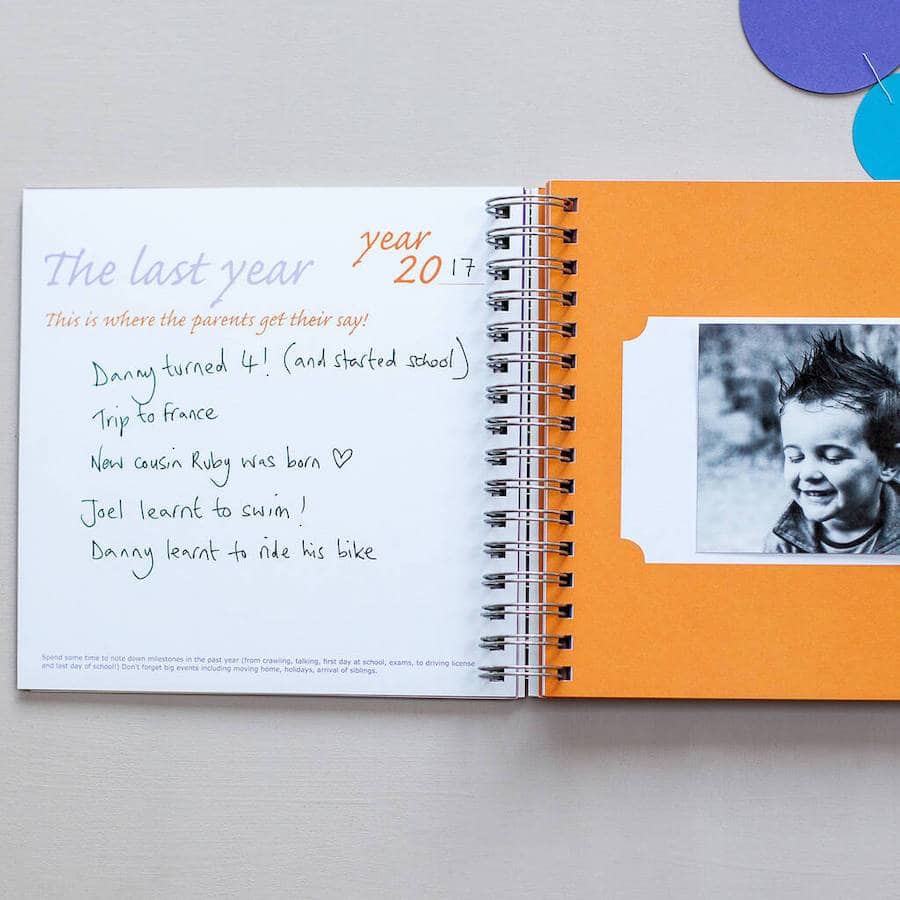 The last year
year
20 17
This is where the parents get their say!
Danny turned 4! (and started school)
Trip to France
New cousin Ruby was born ♡
Joel learnt to swim!
Danny learnt to ride his bike
Spend some time to note down milestones in the past year (from crawling, talking, first day at school, exams, to driving license
and last day of school!) Don't forget big events including moving home, holidays, arrival of siblings.